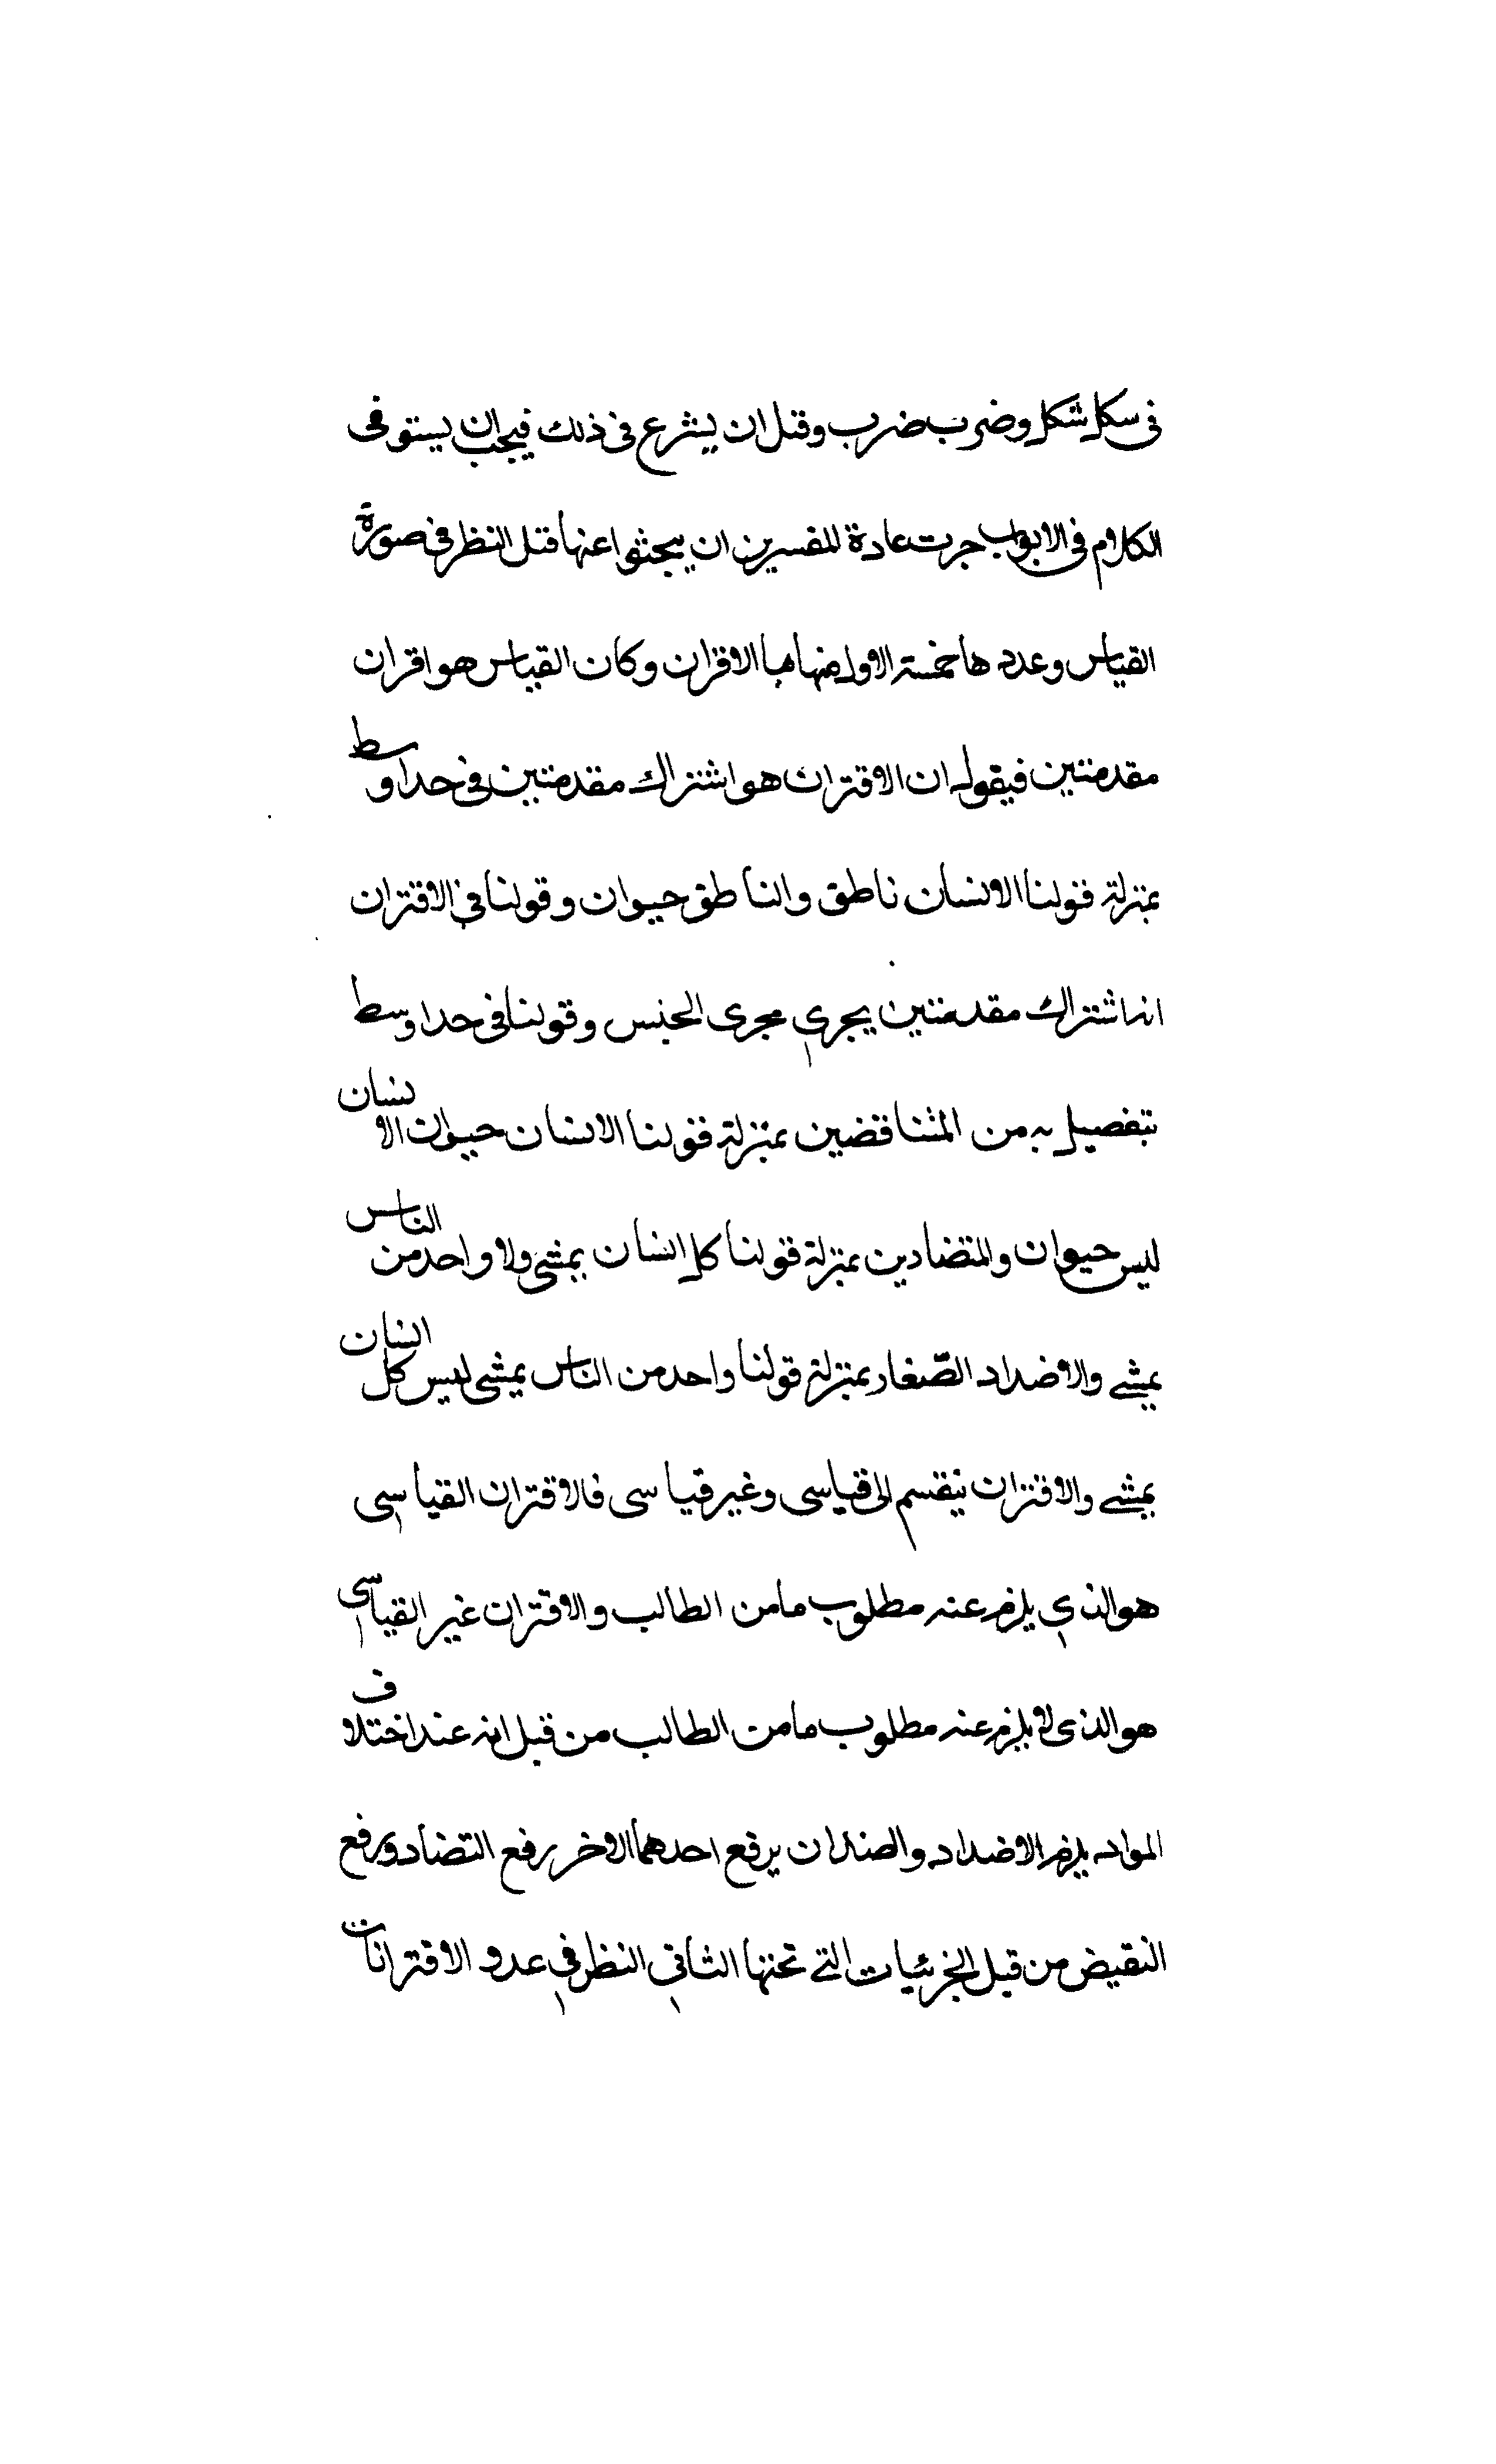 فى سكل شكل وضرب ضرب وقبل ان يشرع فى ذلك فيجب ان يستوفى
الكلام فى الابواب جرت عادة المفسرين ان يبحثوا عنها قبل النظر فى صورة
القياس وعددها خمسة الاول منها ما الاقران وكان القياس هو اقران
مقدمتين فيقول ان الاقتران هو اشتراك مقدمتين فى حد اوسط
بمنزلة قولنا الانسان ناطق والناطق حيوان وقولنا فى الاقتران
انه اشتراك مقدمتين يجرى مجرى الجنس وقولنا فى حد اوسط
تنفصيل به من المتناقضين بمنزلة قولنا الانسان حيوان الانسان
ليس حيوان والمتضادين بمنزلة قولنا كل انسان يمشى ولا واحد من الناس
يمشى والاضداد الصّغار بمنزلة قولنا واحد من الناس يمشى ليس كل انسان
يمشى والاقتران ينقسم الى قياسى وغير قياسى فالاقتران القياسى
هو الذى يلزم عنه مطلوب ما من الطالب والاقتران غير القياسى
هو الذى لا يلزم عنه مطلوب ما من الطالب من قبل انه عند اختلاف
المواد يلزم الاضداد والضدان يرفع احدهما الاخر يرفع التضاد ويرفع
النقيض من قبل الجزئيات التى تحتها الثانى النظر فى عدد الاقترانات